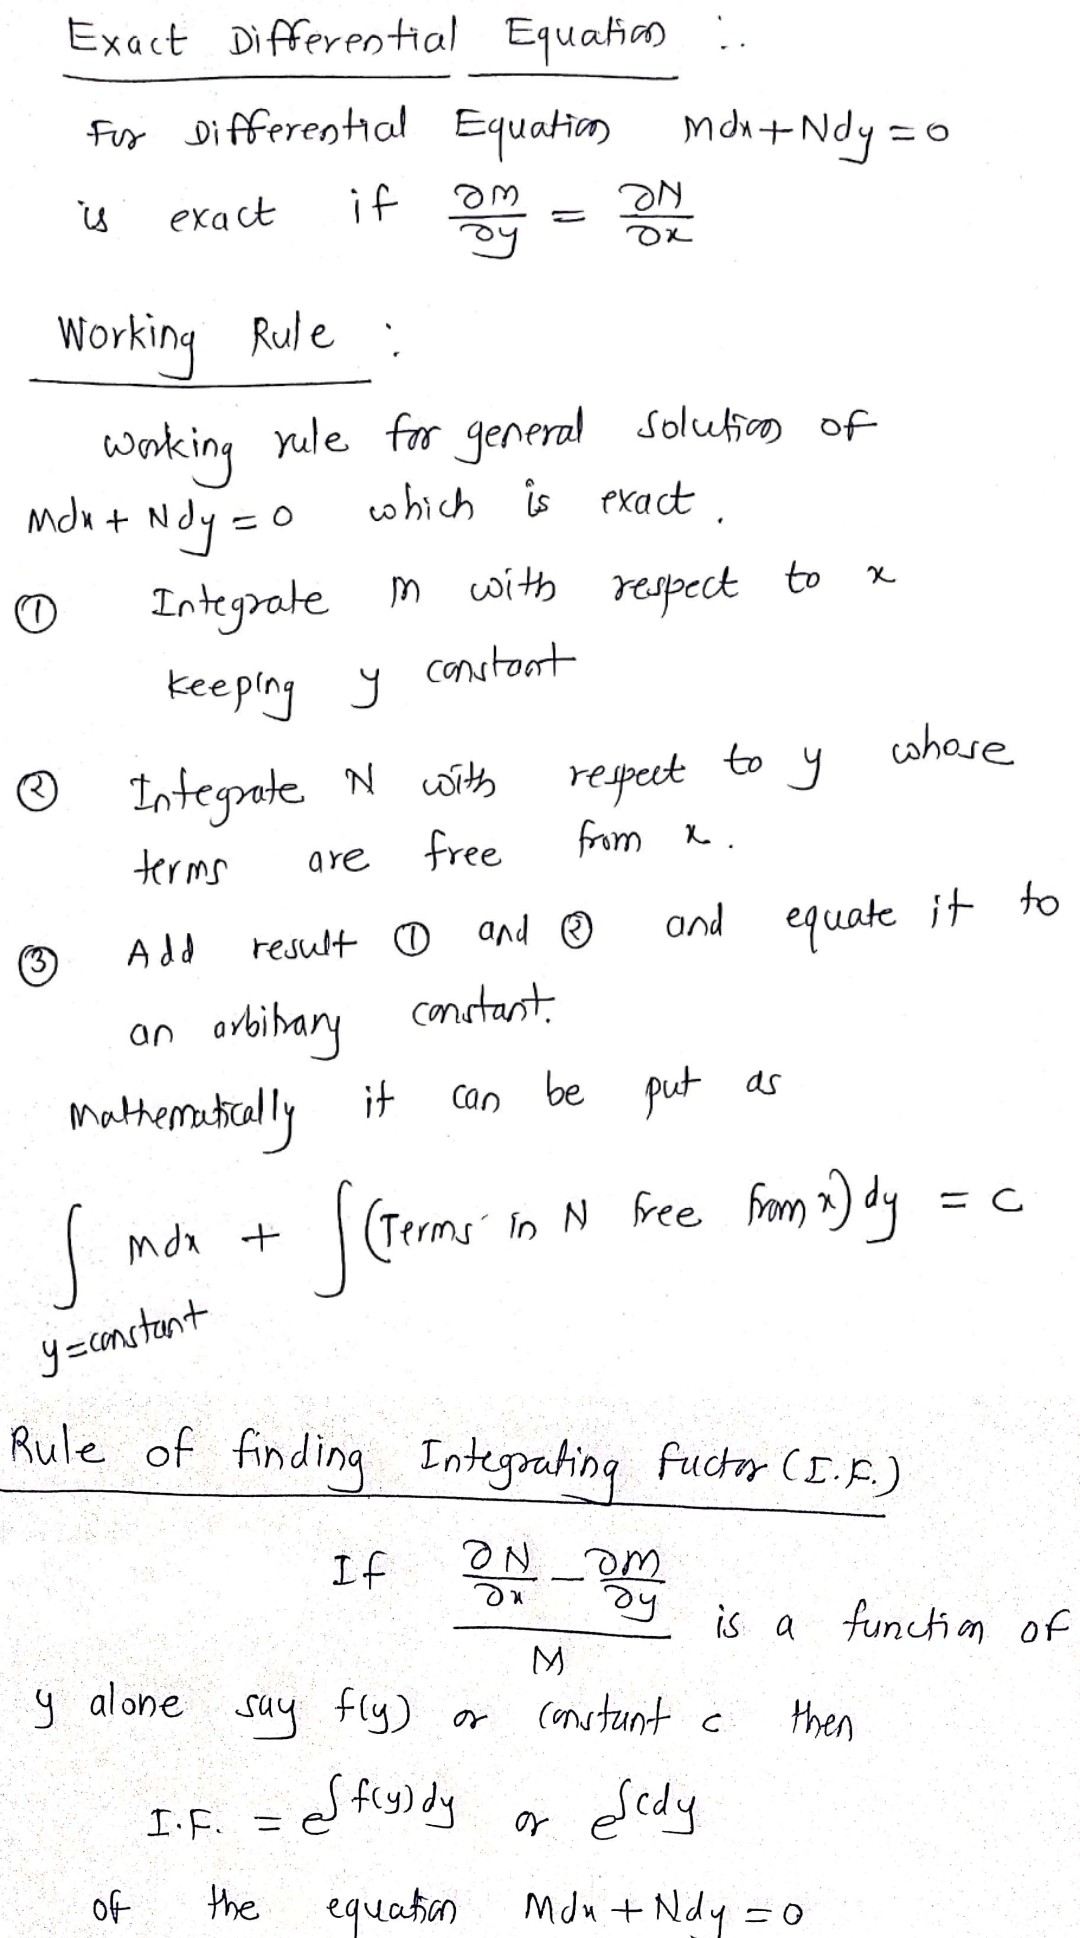 Exact Differential Equation :.
For Differential Equation Mdx + Ndy = 0
is exact if ∂M/∂y = ∂N/∂x
Working Rule :
Working rule for general solution of
Mdx + Ndy = 0 which is exact.
① Integrate M with respect to x
keeping y constant
② Integrate N with respect to y whose
terms are free from x.
③ Add result ① and ② and equate it to
an arbitrary constant.
Mathematically it can be put as
∫ Mdx + ∫ (Terms in N free from x) dy = C
y = constant
Rule of finding Integrating factor (I.F.)
If (∂N/∂x − ∂M/∂y) / M is a function of
y alone say f(y) or constant c then
I.F. = e^∫f(y)dy or e^∫cdy
of the equation Mdx + Ndy = 0